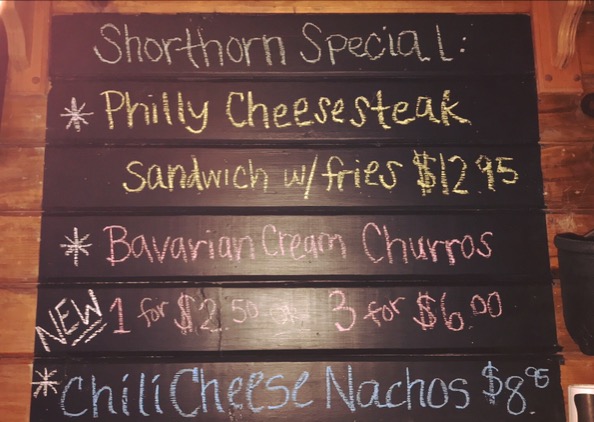 Shorthorn Special:
* Philly Cheesesteak
Sandwich w/ fries $12.95
* Bavarian Cream Churros
NEW 1 for $2.50 or 3 for $6.00
* Chili Cheese Nachos